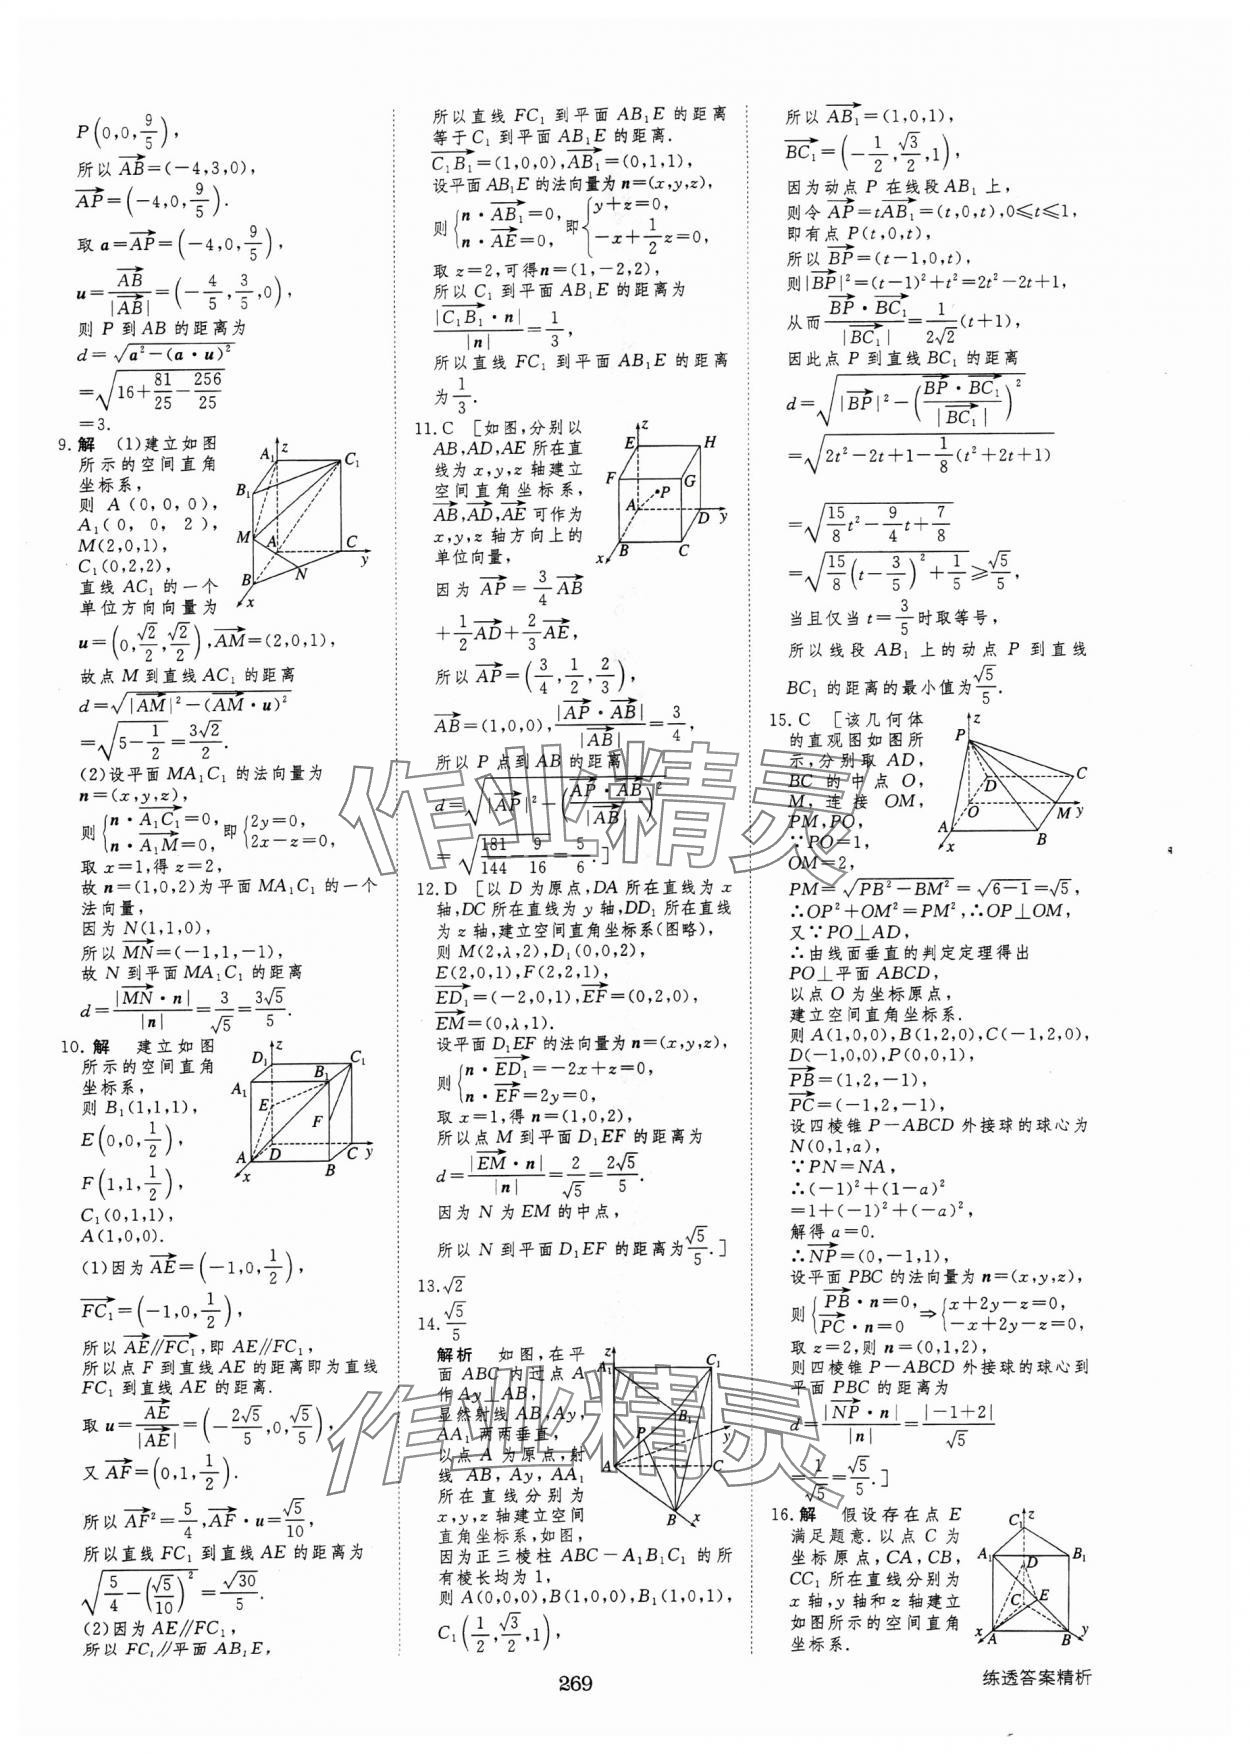 P(0,0,9/5),
所以 AB=(-4,3,0),
AP=(-4,0,9/5).
取 a=AP=(-4,0,9/5),
u=AB/|AB|=(-4/5,3/5,0),
则 P 到 AB 的距离为
d=√(a²-(a·u)²)
=√(16+81/25-256/25)
=3.
9.解 (1)建立如图
所示的空间直角
坐标系,
则 A(0,0,0),
A₁(0,0,2),
M(2,0,1),
C₁(0,2,2),
直线 AC₁ 的一个
单位方向向量为
u=(0,√2/2,√2/2),AM=(2,0,1),
故点 M 到直线 AC₁ 的距离
d=√(|AM|²-(AM·u)²)
=√(5-1/2)=3√2/2.
(2)设平面 MA₁C₁ 的法向量为
n=(x,y,z),
则{n·A₁C₁=0, n·A₁M=0, 即{2y=0, 2x-z=0,
取 x=1,得 z=2,
故 n=(1,0,2)为平面 MA₁C₁ 的一个
法向量,
因为 N(1,1,0),
所以 MN=(-1,1,-1),
故 N 到平面 MA₁C₁ 的距离
d=|MN·n|/|n|=3/√5=3√5/5.
10.解 建立如图
所示的空间直角
坐标系,
则 B₁(1,1,1),
E(0,0,1/2),
F(1,1,1/2),
C₁(0,1,1),
A(1,0,0).
(1)因为 AE=(-1,0,1/2),
FC₁=(-1,0,1/2),
所以 AE∥FC₁,即 AE∥FC₁,
所以点 F 到直线 AE 的距离即为直线
FC₁ 到直线 AE 的距离.
取 u=AE/|AE|=(-2√5/5,0,√5/5),
又 AF=(0,1,1/2).
所以 AF²=5/4,AF·u=√5/10,
所以直线 FC₁ 到直线 AE 的距离为
√(5/4-(√5/10)²)=√30/5.
(2)因为 AE∥FC₁,
所以 FC₁∥平面 AB₁E,
所以直线 FC₁ 到平面 AB₁E 的距离
等于 C₁ 到平面 AB₁E 的距离.
C₁B₁=(1,0,0),AB₁=(0,1,1),
设平面 AB₁E 的法向量为 n=(x,y,z),
则{n·AB₁=0, n·AE=0, 即{y+z=0, -x+1/2z=0,
取 z=2,可得 n=(1,-2,2),
所以 C₁ 到平面 AB₁E 的距离为
|C₁B₁·n|/|n|=1/3,
所以直线 FC₁ 到平面 AB₁E 的距离
为1/3.
11.C [如图,分别以
AB,AD,AE 所在直
线为 x,y,z 轴建立
空间直角坐标系,
AB,AD,AE 可作为
x,y,z 轴方向上的
单位向量,
因为 AP=3/4AB
+1/2AD+2/3AE,
所以 AP=(3/4,1/2,2/3),
AB=(1,0,0),|AP·AB|/|AB|=3/4,
所以 P 点到 AB 的距离
d=√(|AP|²-(AP·AB/|AB|)²)
=√(181/144-9/16)=5/6.]
12.D [以 D 为原点,DA 所在直线为 x
轴,DC 所在直线为 y 轴,DD₁ 所在直线
为 z 轴,建立空间直角坐标系(图略),
则 M(2,λ,2),D₁(0,0,2),
E(2,0,1),F(2,2,1),
ED₁=(-2,0,1),EF=(0,2,0),
EM=(0,λ,1).
设平面 D₁EF 的法向量为 n=(x,y,z),
则{n·ED₁=-2x+z=0, n·EF=2y=0,
取 x=1,得 n=(1,0,2),
所以点 M 到平面 D₁EF 的距离为
d=|EM·n|/|n|=2/√5=2√5/5.
因为 N 为 EM 的中点,
所以 N 到平面 D₁EF 的距离为√5/5.]
13.√2
14.√5/5
解析 如图,在平
面 ABC 内过点 A
作 Ay⊥AB,
显然射线 AB,Ay,
AA₁ 两两垂直,
以点 A 为原点,射
线 AB,Ay,AA₁
所在直线分别为
x,y,z 轴建立空间
直角坐标系,如图,
因为正三棱柱 ABC-A₁B₁C₁ 的所
有棱长均为 1,
则 A(0,0,0),B(1,0,0),B₁(1,0,1),
C₁(1/2,√3/2,1),
所以 AB₁=(1,0,1),
BC₁=(-1/2,√3/2,1),
因为动点 P 在线段 AB₁ 上,
则令 AP=tAB₁=(t,0,t),0≤t≤1,
即有点 P(t,0,t),
所以 BP=(t-1,0,t),
则|BP|²=(t-1)²+t²=2t²-2t+1,
从而 BP·BC₁/|BC₁|=1/2√2(t+1),
因此点 P 到直线 BC₁ 的距离
d=√(|BP|²-(BP·BC₁/|BC₁|)²)
=√(2t²-2t+1-1/8(t²+2t+1))
=√(15/8t²-9/4t+7/8)
=√(15/8(t-3/5)²+1/5)≥√5/5,
当且仅当 t=3/5时取等号,
所以线段 AB₁ 上的动点 P 到直线
BC₁ 的距离的最小值为√5/5.
15.C [该几何体
的直观图如图所
示,分别取 AD,
BC 的中点 O,
M,连接 OM,
PM,PO,
∵PO=1,
OM=2,
PM=√(PB²-BM²)=√(6-1)=√5,
∴OP²+OM²=PM²,∴OP⊥OM,
又∵PO⊥AD,
∴由线面垂直的判定定理得出
PO⊥平面 ABCD,
以点 O 为坐标原点,
建立空间直角坐标系.
则 A(1,0,0),B(1,2,0),C(-1,2,0),
D(-1,0,0),P(0,0,1),
PB=(1,2,-1),
PC=(-1,2,-1),
设四棱锥 P-ABCD 外接球的球心为
N(0,1,a),
∵PN=NA,
∴(-1)²+(1-a)²
=1+(-1)²+(-a)²
解得 a=0.
∴NP=(0,-1,1),
设平面 PBC 的法向量为 n=(x,y,z),
则{PB·n=0, PC·n=0 ⇒{x+2y-z=0, -x+2y-z=0,
取 z=2,则 n=(0,1,2),
则四棱锥 P-ABCD 外接球的球心到
平面 PBC 的距离为
d=|NP·n|/|n|=|-1+2|/√5
=1/√5=√5/5.]
16.解 假设存在点 E
满足题意.以点 C 为
坐标原点,CA,CB,
CC₁ 所在直线分别为
x 轴,y 轴和 z 轴建立
如图所示的空间直角
坐标系.
作业精灵
作业精灵
269
练透答案精析